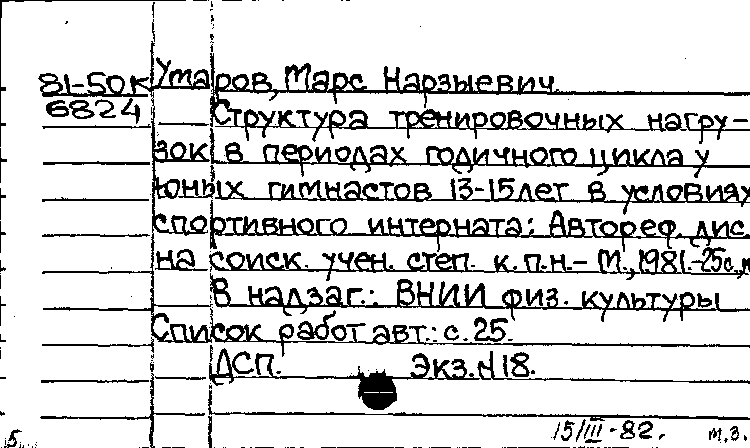 81-50К Умаров, Марс Нарзыевич
6824 Структура тренировочных нагру-
зок в периодах годичного цикла у
юных гимнастов 13-15 лет в условиях
спортивного интерната: Автореф. дис.
на соиск. учен. степ. к.п.н.- М., 1981.-25с.,
В надзаг.: ВНИИ физ. культуры
Список работ авт.: с. 25.
ДСП. Экз.N18.
15/III-82. м.з.